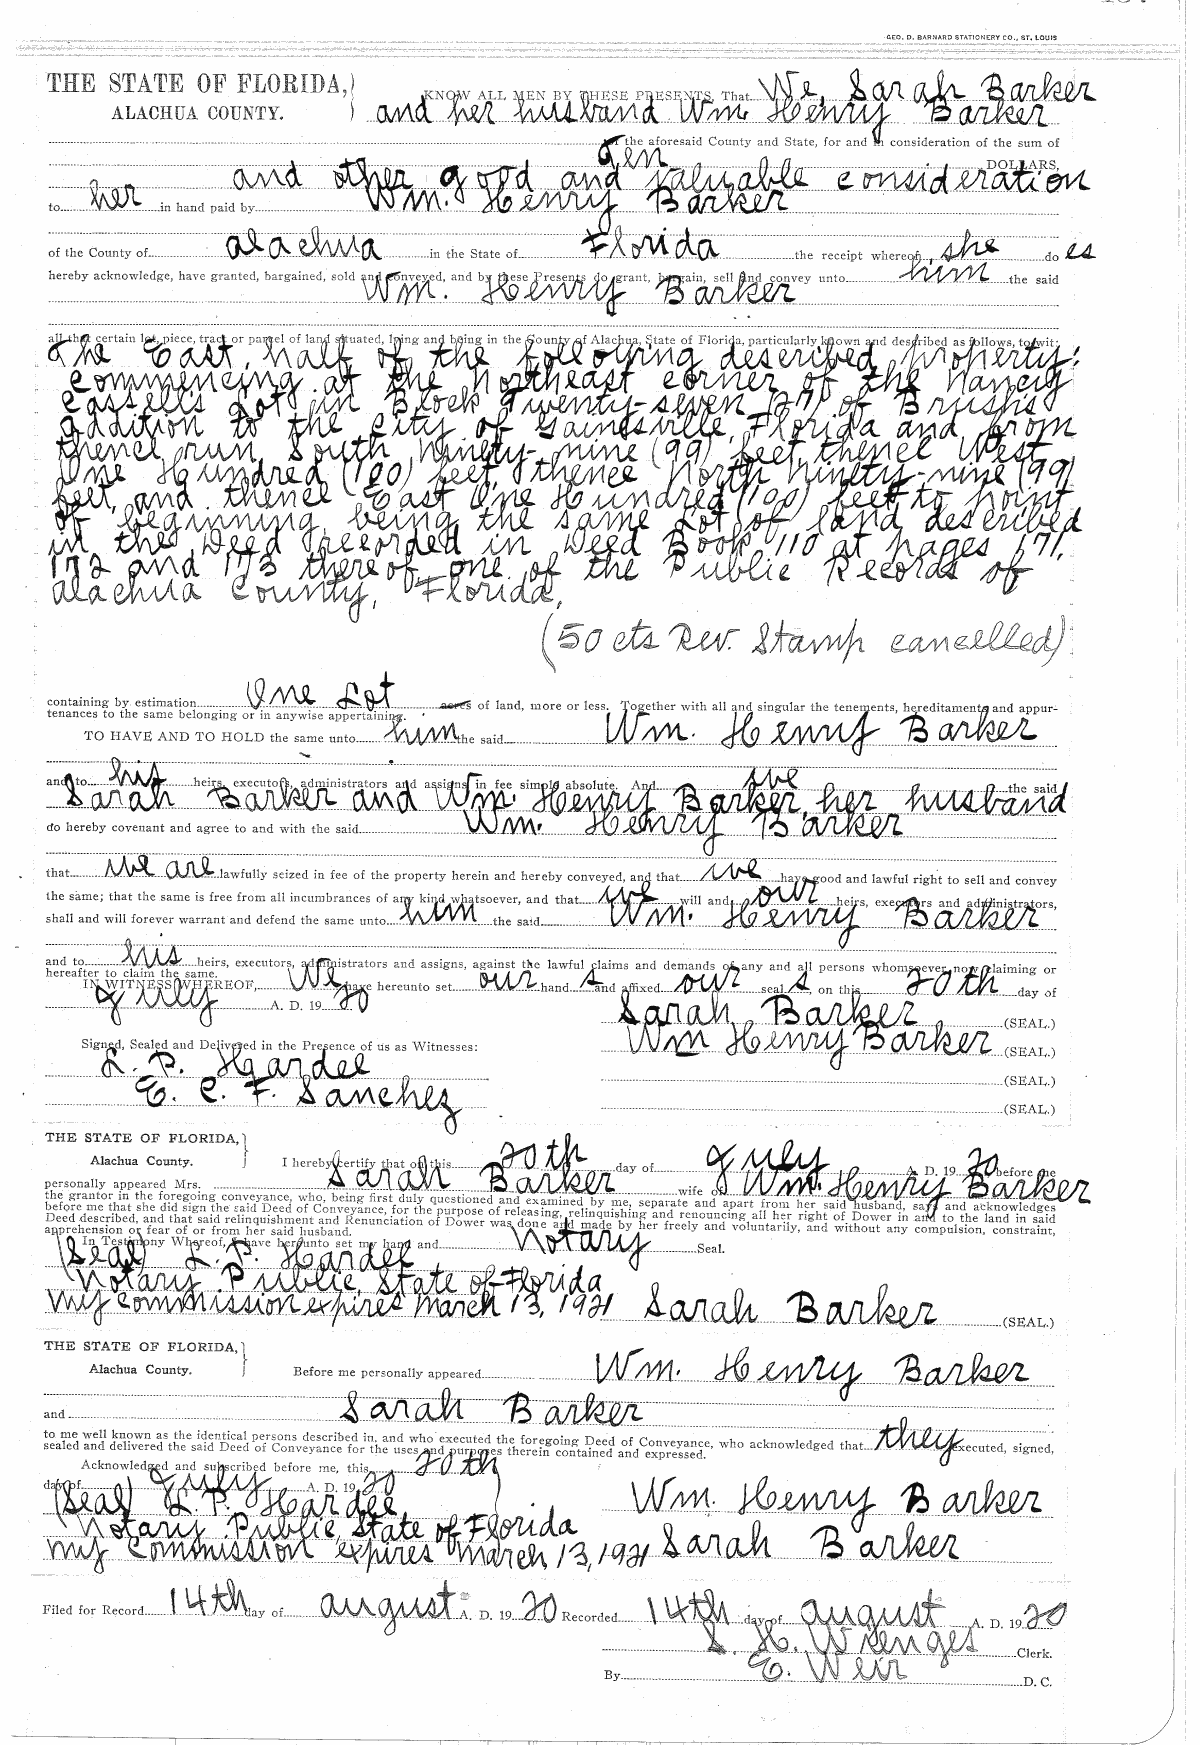 GEO. D. BARNARD STATIONERY CO., ST. LOUIS
THE STATE OF FLORIDA, KNOW ALL MEN BY THESE PRESENTS, That We, Sarah Barker
ALACHUA COUNTY. and her husband Wm Henry Barker
the aforesaid County and State, for and in consideration of the sum of
Ten DOLLARS,
and other good and valuable consideration
to her in hand paid by Wm. Henry Barker
of the County of Alachua in the State of Florida the receipt whereof she do es
hereby acknowledge, have granted, bargained, sold and conveyed, and by these Presents do grant, bargain, sell and convey unto him the said
Wm. Henry Barker
all that certain lot, piece, tract or parcel of land situated, lying and being in the County of Alachua, State of Florida, particularly known and described as follows, to wit:
The East half of the following described property:
commencing at the northeast corner of the Nancy
Cassells Lot in Block Twenty-seven (27) of Brush's
addition to the City of Gainesville, Florida and from
thence run South Ninety-nine (99) feet, thence West
One Hundred (100) feet, thence North ninety-nine (99)
feet, and thence East One Hundred (100) feet to point
of beginning, being the same Lot of land described
in the Deed recorded in Deed Book 110 at pages 171,
172 and 173 thereof, one of the Public Records of
Alachua County, Florida,
(50 cts Rev. Stamp cancelled)
containing by estimation One Lot acres of land, more or less. Together with all and singular the tenements, hereditaments and appur-
tenances to the same belonging or in anywise appertaining.
TO HAVE AND TO HOLD the same unto him the said Wm. Henry Barker
and to his heirs, executors, administrators and assigns in fee simple absolute. And we the said
Sarah Barker and Wm. Henry Barker, her husband
do hereby covenant and agree to and with the said Wm. Henry Barker
that we are lawfully seized in fee of the property herein and hereby conveyed, and that we have good and lawful right to sell and convey
the same; that the same is free from all incumbrances of any kind whatsoever, and that we will and our heirs, executors and administrators,
shall and will forever warrant and defend the same unto him the said Wm. Henry Barker
and to his heirs, executors, administrators and assigns, against the lawful claims and demands of any and all persons whomsoever now claiming or
hereafter to claim the same.
IN WITNESS WHEREOF, We have hereunto set our hand s and affixed our seal s, on this 20th day of
July A. D. 19 20
Sarah Barker (SEAL.)
Wm Henry Barker (SEAL.)
Signed, Sealed and Delivered in the Presence of us as Witnesses:
L. P. Hardee (SEAL.)
E. C. F. Sanchez (SEAL.)
THE STATE OF FLORIDA,
Alachua County. I hereby certify that on this 20th day of July A. D. 19 20 before me
personally appeared Mrs. Sarah Barker wife of Wm. Henry Barker
the grantor in the foregoing conveyance, who, being first duly questioned and examined by me, separate and apart from her said husband, says and acknowledges
before me that she did sign the said Deed of Conveyance, for the purpose of releasing, relinquishing and renouncing all her right of Dower in and to the land in said
Deed described, and that said relinquishment and Renunciation of Dower was done and made by her freely and voluntarily, and without any compulsion, constraint,
apprehension or fear of or from her said husband.
In Testimony Whereof, I have hereunto set my hand and Notary Seal.
(Seal) L. P. Hardee
Notary Public, State of Florida
My Commission expires March 13, 1921 Sarah Barker (SEAL.)
THE STATE OF FLORIDA,
Alachua County. Before me personally appeared Wm. Henry Barker
and Sarah Barker
to me well known as the identical persons described in, and who executed the foregoing Deed of Conveyance, who acknowledged that they executed, signed,
sealed and delivered the said Deed of Conveyance for the uses and purposes therein contained and expressed.
Acknowledged and subscribed before me, this 20th
day of July A. D. 19 20
(Seal) L. P. Hardee Wm. Henry Barker
Notary Public, State of Florida
My Commission expires March 13, 1921 Sarah Barker
Filed for Record 14th day of August A. D. 19 20 Recorded 14th day of August A. D. 19 20
S. H. Wienges Clerk.
By E. Weir D. C.